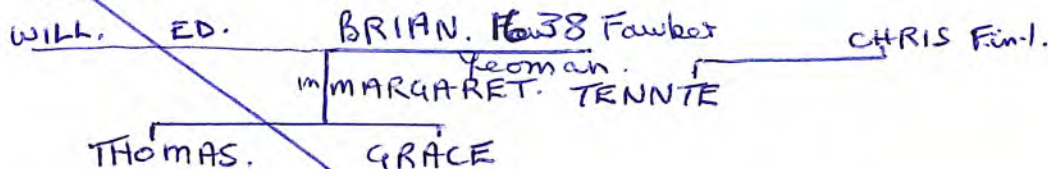 WILL. ED. BRIAN. 1638 Fawber CHRIS Fin-l.
Yeoman.
m MARGARET. TENNTE
THOMAS. GRACE